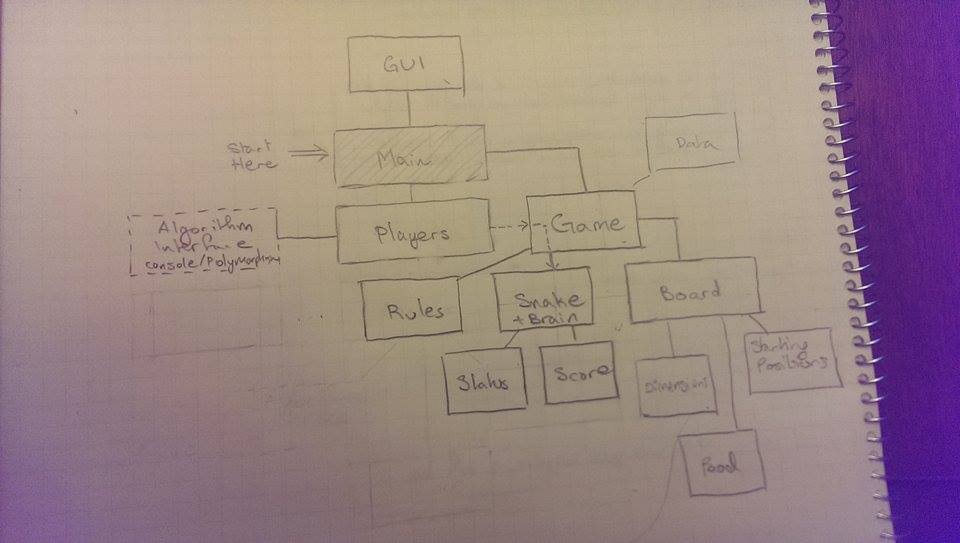 GUI
Start
Here
Main
Data
Algorithm
Interface
console/Polymorphism
Players
Game
Rules
Snake
+ Brain
Board
Status
Score
Dimensions
Starting
Positions
Food